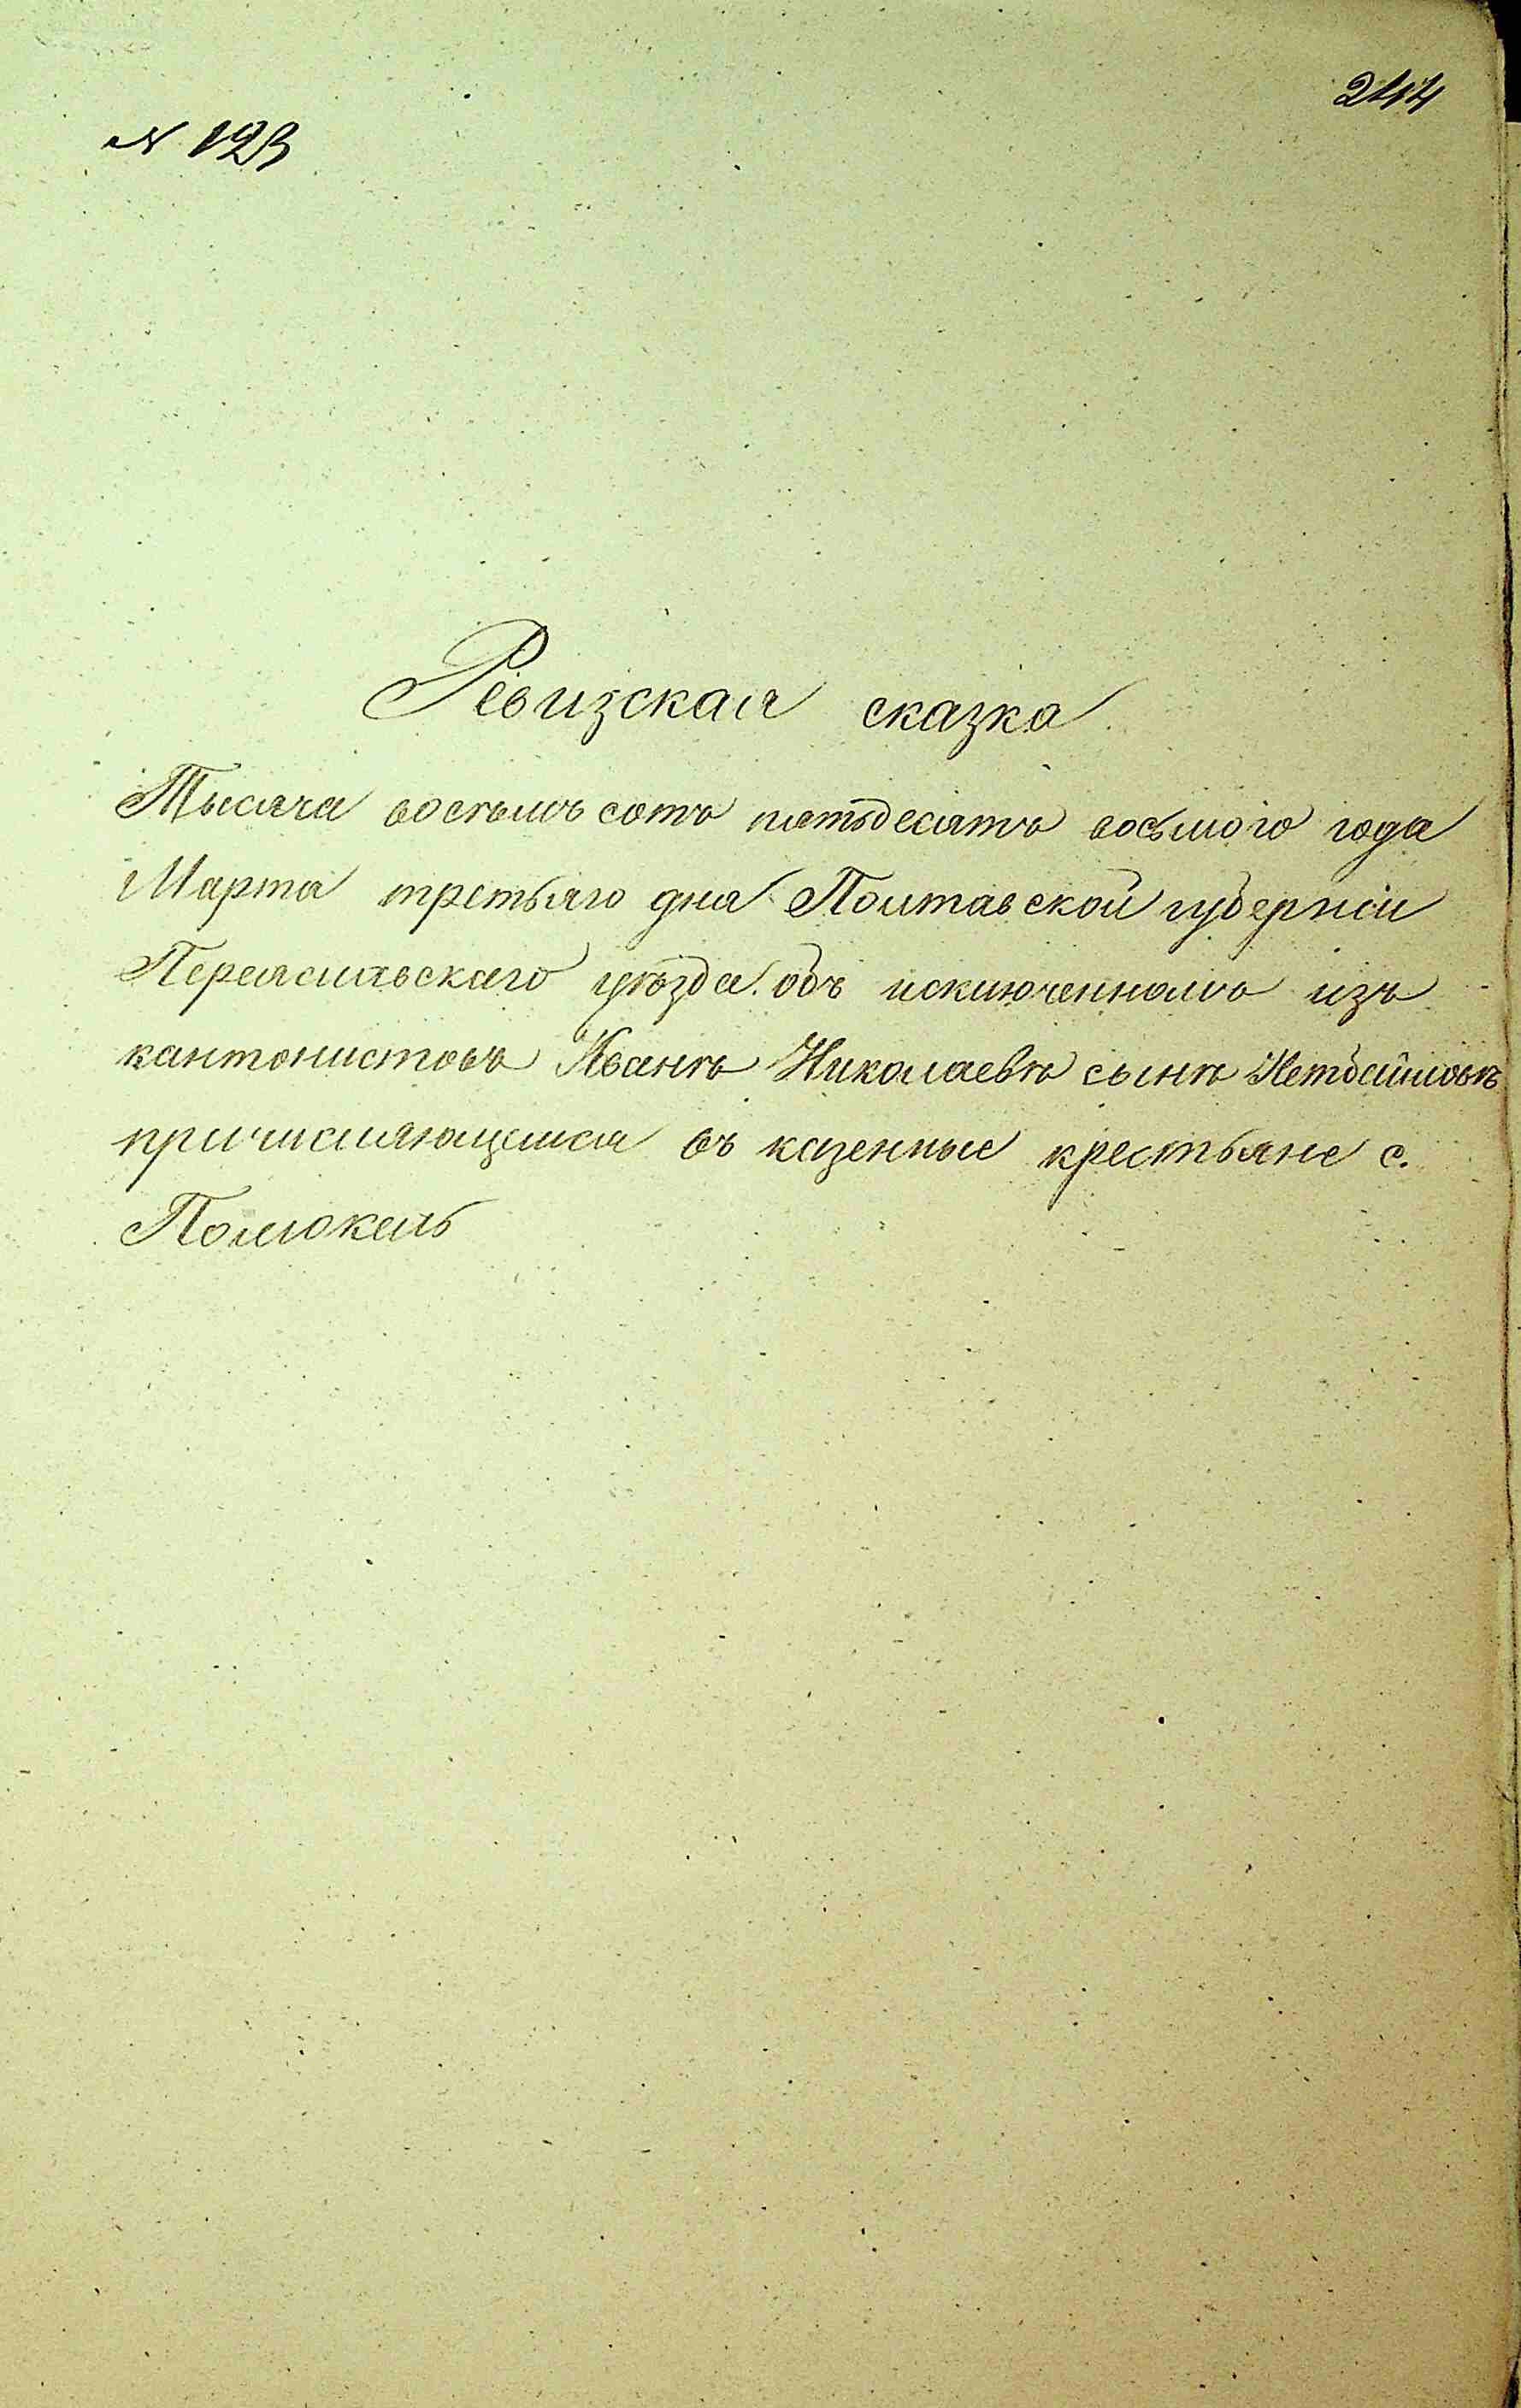 244
№ 123
Ревизская сказка
Тысяча восемьсотъ пятьдесятъ восьмого года
Марта третьяго дня Полтавской губерніи
Переяславскаго уѣзда. объ исключенномъ изъ
кантонистовъ Иванѣ Николаевѣ сынѣ
причисляющемся въ казенные крестьяне с.
Помокель